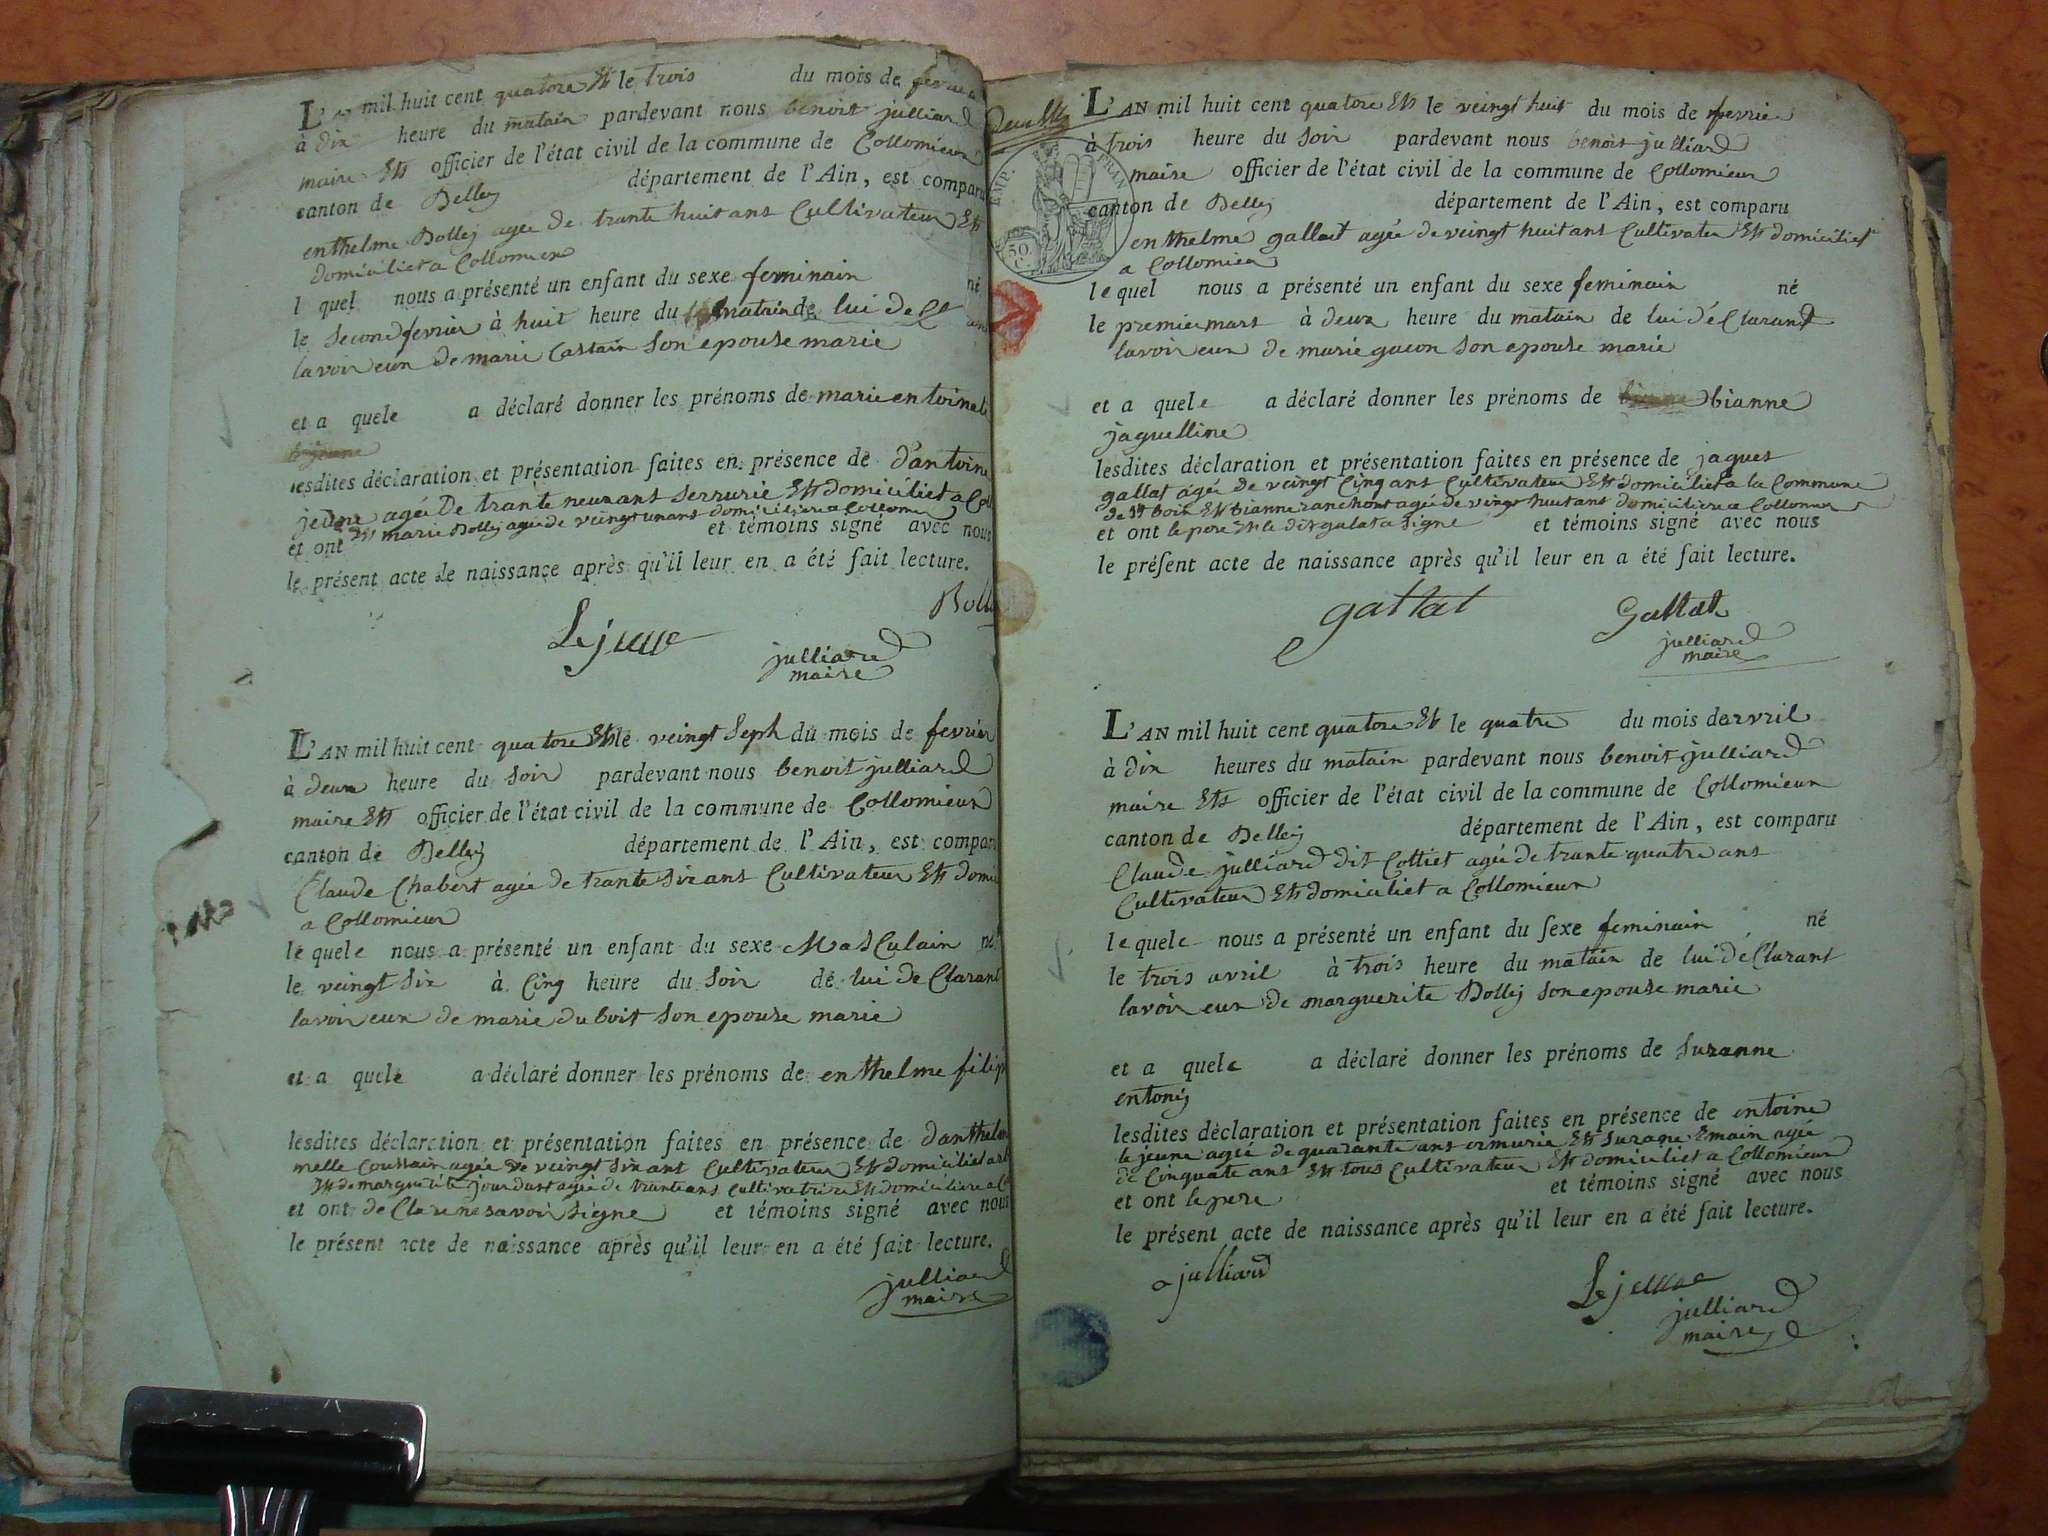 L'AN mil huit cent quatorze Et le trois du mois de fevrie
à dix heure du matain pardevant nous benoit julliard
maire Et officier de l'état civil de la commune de Collomieux
canton de Belley département de l'Ain, est comparu
enthelme Bolley agée de trante huit ans Cultivateur Et
domiciliet a Collomieux
l quel nous a présenté un enfant du sexe feminain né
le second fevrier à huit heure du matain de lui de Cl
lavoir eun de marie Castain son epouse marie
et a quele a déclaré donner les prénoms de marie entoinet
lesdites déclaration et présentation faites en présence de d'antoine
jeune agée De trante neuf ans serrurie Et domiciliet a Col
Et marie Bolley agée de veingt un ans domiciliere a Collomieu
et ont et témoins signé avec nous
le présent acte de naissance après qu'il leur en a été fait lecture.
Bolle
Lejeune
julliard
maire
L'AN mil huit cent quatorze Et le veingt Sept du mois de fevrier
à deux heure du soir pardevant nous benoit julliard
maire Et officier de l'état civil de la commune de Collomieux
canton de Belley département de l'Ain, est comparu
Claude Chabert agée de trante six ans Cultivateur Et domi
a Collomieux
le quele nous a présenté un enfant du sexe Masculain né
le veingt six à Cinq heure du soir de lui de Clarant
lavoir eun de marie duboit son epouse marie
et a quele a déclaré donner les prénoms de enthelme filip
lesdites déclaration et présentation faites en présence de d'anthelm
melle coussain agée de veingt six ant Cultivateur Et domiciliet a
Et de marguerite jourdant agée de trante ans cultivatrice Et domiciliere a
et ont de Clare ne savoir signe et témoins signé avec nous
le présent acte de naissance après qu'il leur en a été fait lecture.
julliard
maire
EMP. FRAN
50
C.
L'AN mil huit cent quatorze Et le veingt huit du mois de fevrie
à trois heure du soir pardevant nous benoit julliard
maire officier de l'état civil de la commune de Collomieux
canton de Belley département de l'Ain, est comparu
enthelme gallat agée de veingt huit ans Cultivateu Et domiciliet
a Collomieu
le quel nous a présenté un enfant du sexe feminain né
le premier mars à deux heure du matain de lui dé Clarant
lavoir eun de marie gacon son epouse marie
et a quele a déclaré donner les prénoms de bianne
jaquelline
lesdites déclaration et présentation faites en présence de jaques
gallat agée de veingt Cinq ans Cultivateur Et domiciliet a la Commune
de St boix Et bianne ranchont agée de veingt huit ans domiciliere a Collomieu
et ont le pere Et le dit galat a signe et témoins signé avec nous
le présent acte de naissance après qu'il leur en a été fait lecture.
gallat
Gallat
julliard
maire
L'AN mil huit cent quatorze Et le quatre du mois de avril
à dix heures du matain pardevant nous benoit julliard
maire Et officier de l'état civil de la commune de Collomieux
canton de Belley département de l'Ain, est comparu
Claude julliard dit Colliet agée de trante quatre ans
Cultivateur Et domiciliet a Collomieux
le quele nous a présenté un enfant du sexe feminain né
le trois avril à trois heure du matain de lui dé Clarant
lavoir eun de marguerite Bolley son epouse marie
et a quele a déclaré donner les prénoms de suzanne
entoniy
lesdites déclaration et présentation faites en présence de entoine
le jeune agée de quarante ans armurie Et suzane Emain agée
de Cinquate ans Et tous Cultivateur Et domiciliet a Collomieux
et ont le pere et témoins signé avec nous
le présent acte de naissance après qu'il leur en a été fait lecture.
julliard
Lejeune
julliard
maire